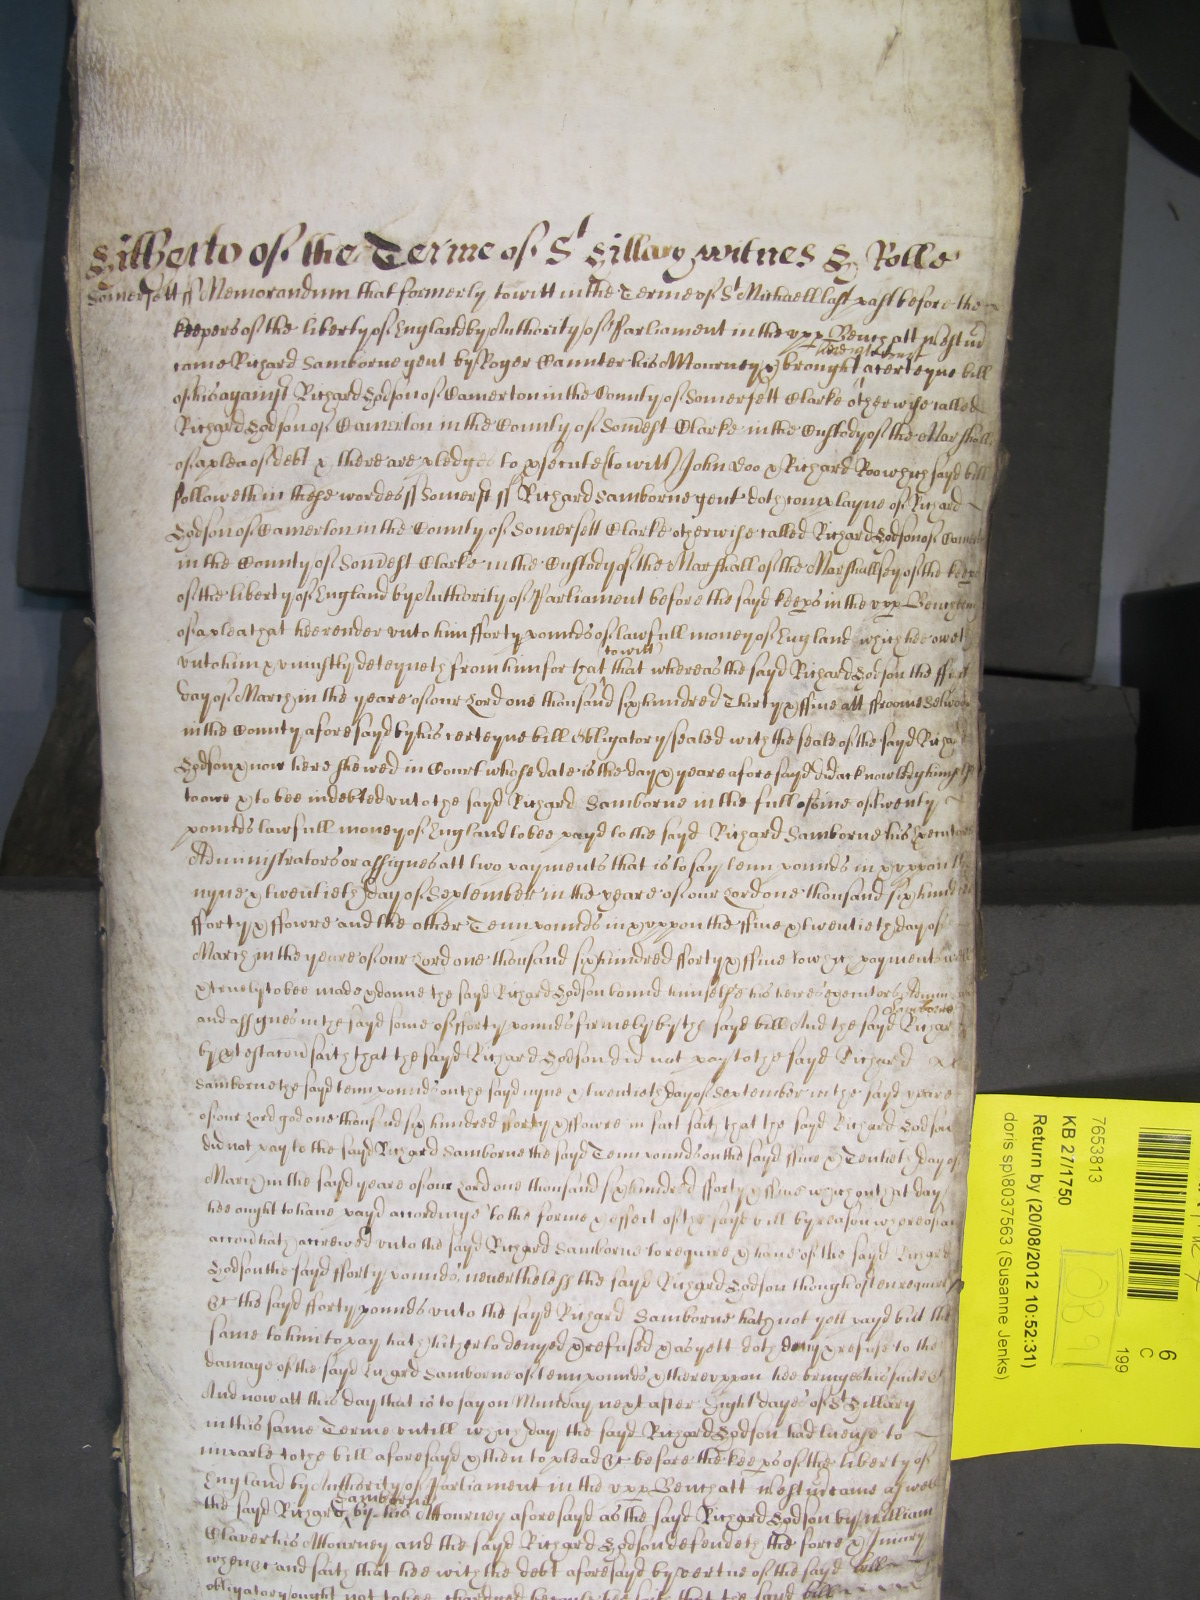 Hitherto of the Terme of St Hillary witnes H Rolle
Somersett ss Memorandum that formerly to witt in the Terme of St Michaell last past before the
keepers of the liberty of England by Authority of Parliament in the upp Bench att Westm
came Richard Samborne gent by Roger Caunter his Attourney & brought then & there a certeyne bill
of his against Richard Hodson of Camerton in the County of Somersett Clarke otherwise called
Richard Hodson of Camerton in the County of Somest Clarke in the Custody of the Marshall
of a plea of debt & there are pledges to psecute (to witt) John Doo & Richard Roo which sayd bill
followeth in these wordes ss Somerst ss Richard Samborne gent doth complayne of Richard
Hodson of Camerton in the County of Somersett Clarke otherwise called Richard Hodson of Camerton
in the County of Somest Clarke in the Custody of the Marshall of the Marshallsey of the keeps
of the liberty of England by Authority of Parliament before the sayd keeps in the upp Bench
of a plea that hee render unto him fforty pounds of lawfull money of England which hee oweth
unto him & uniustly deteyneth from him for that to witt that whereas the sayd Richard Hodson the ffirst
day of March in the yeare of our Lord one thousand six hundred Thirty & ffive att ffroome Selwood
in the County aforesayd by his certeyne bill obligatory sealed with the seale of the sayd Richard
Hodson & now here shewed in Court whose date is the day & yeare aforesayd did acknowledg himselfe
to owe & to bee indebted unto the sayd Richard Samborne in the full sume of twenty
pounds lawfull money of England to bee payd to the sayd Richard Samborne his Executors
Administrators or assignes att two payments that is to say tenn pounds in & uppon the
nyne & twentieth day of September in the yeare of our Lord one thousand six hundred
fforty & ffowre and the other Tenn pounds in & uppon the ffive & twentieth day of
March in the yeare of our Lord one thousand six hundred fforty & ffive to which payments well
& truely to bee made & donne the sayd Richard Hodson bound himselfe his heires executors Admin
and assignes in the sayd some of fforty pounds firmely by the sayd bill And the sayd Richard Samborne
by ptestacon saith that the sayd Richard Hodson did not pay to the sayd Richard
Samborne the sayd tenn pounds on the sayd nyne & twentieth day of September in the sayd yeare
of our Lord god one thousand six hundred fforty & ffowre in fact saith that the sayd Richard Hodson
did not pay to the sayd Richard Samborne the sayd Tenn pounds on the sayd ffive & Twentieth day of
March in the sayd yeare of our Lord one thousand six hundred fforty & ffive which on that day
hee ought to have payd accordinge to the forme & effect of the sayd bill by reason whereof an
accon hath accrewed unto the sayd Richard Samborne to require & have of the sayd Richard
Hodson the sayd fforty pounds nevertheless the sayd Richard Hodson though often required
&c the sayd fforty pounds unto the sayd Richard Samborne hath not yett payd but the
same to him to pay hath hitherto denyed & refused & as yett doth deny & refuse to the
damage of the sayd Richard Samborne of tenn pounds & thereuppon hee bringeth his suite &c
And now att this day that is to say on Munday next after Eight dayes of St Hillary
in this same Terme untill which day the sayd Richard Hodson had licence to
imparle to the bill aforesayd & then to plead &c before the keeps of the liberty of
England by Authority of Parliament in the upp Bench att Westm came as well
the sayd Richard Samborne by his Attourney aforesayd as the sayd Richard Hodson by William
Clavert his Attourney and the sayd Richard Hodson defendeth the force & Iniury
when &c and saith that hee with the debt aforesayd by vertue of the sayd bill
obligatory ought not to bee charged because hee saith that the sayd bill
7653813
KB 27/1750
Return by (20/08/2012 10:52:31)
doris sp\8037563 (Susanne Jenks)
6
C
199